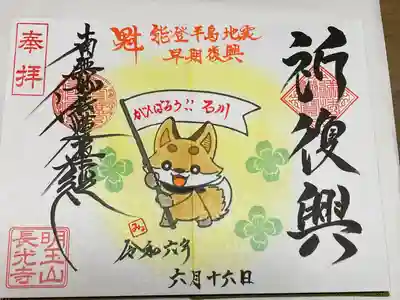 祈復興
魁
能登半島地震
早期復興
がんばろう!! 石川
令和六年
六月十六日
奉拝
南無妙法蓮華経
明王山
長光寺